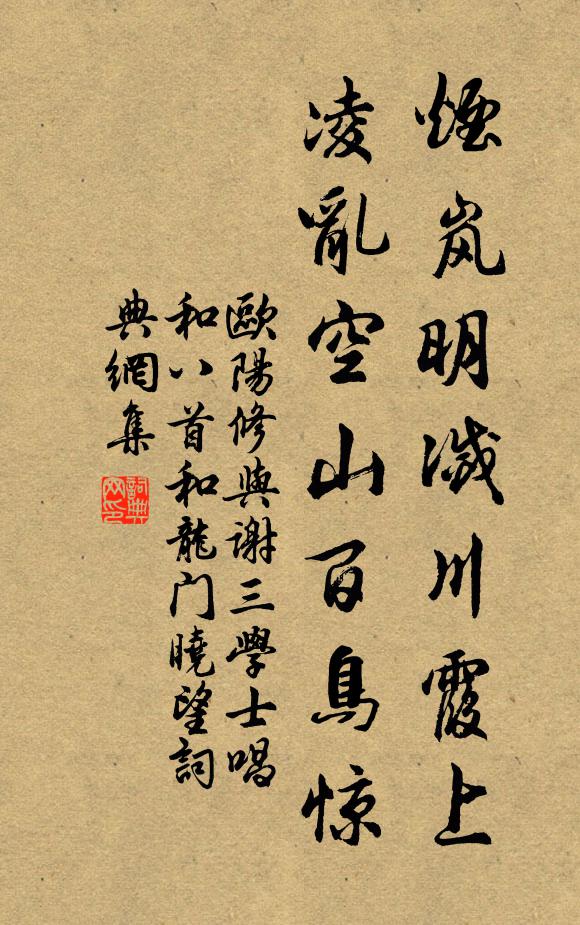 煙岚明滅川霞上
凌亂空山百鳥惊
歐陽修與謝三學士唱
和八首和龍门曉望詞
典網集
詞典
网印